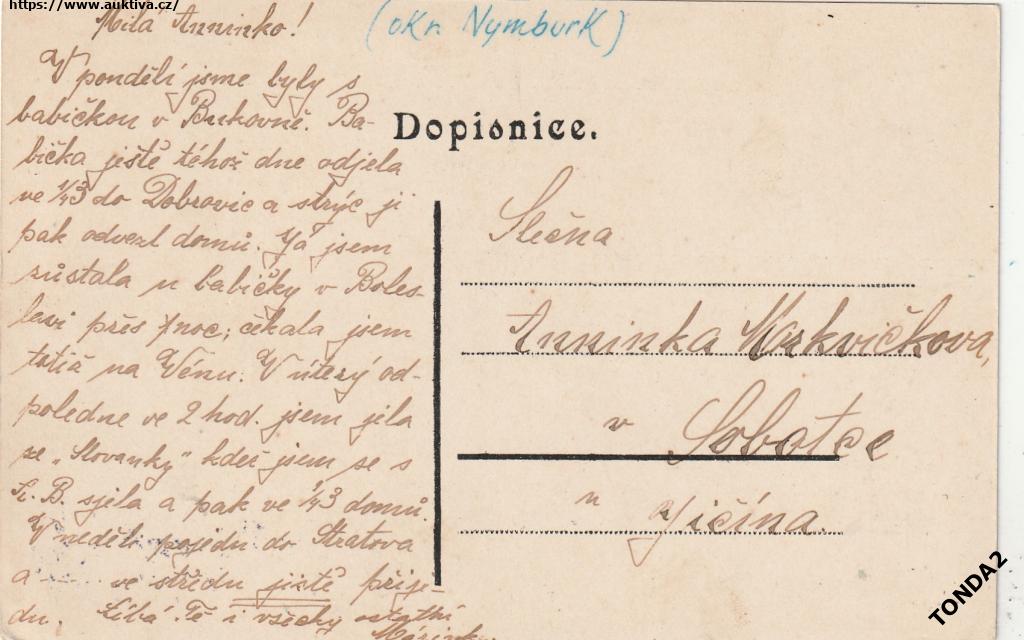 https://www.auktiva.cz/
Milá Anninko!
(okr. Nymburk)
V pondělí jsme byly s
babičkou v Bukovně. Ba-
bička ještě téhož dne odjela
ve ¼3 do Dobrovic a strýc ji
pak odvezl domů. Já jsem
zůstala u babičky v Boles-
lavi přes noc; čekala jsem
totiž na Věnu. V úterý od-
poledne ve 2 hod. jsem jela
ze „Slovanky" kdež jsem se s
B. sjela a pak ve ¼3 domů.
V neděli pojedu do Stratova
a ve středu jistě přije-
du. Líbá Tě i všecky ostatní
Mářinka
Dopisnice.
Slečna
Anninka Mrkvičkova,
v Sobotce
u Jičína.
TONDA2